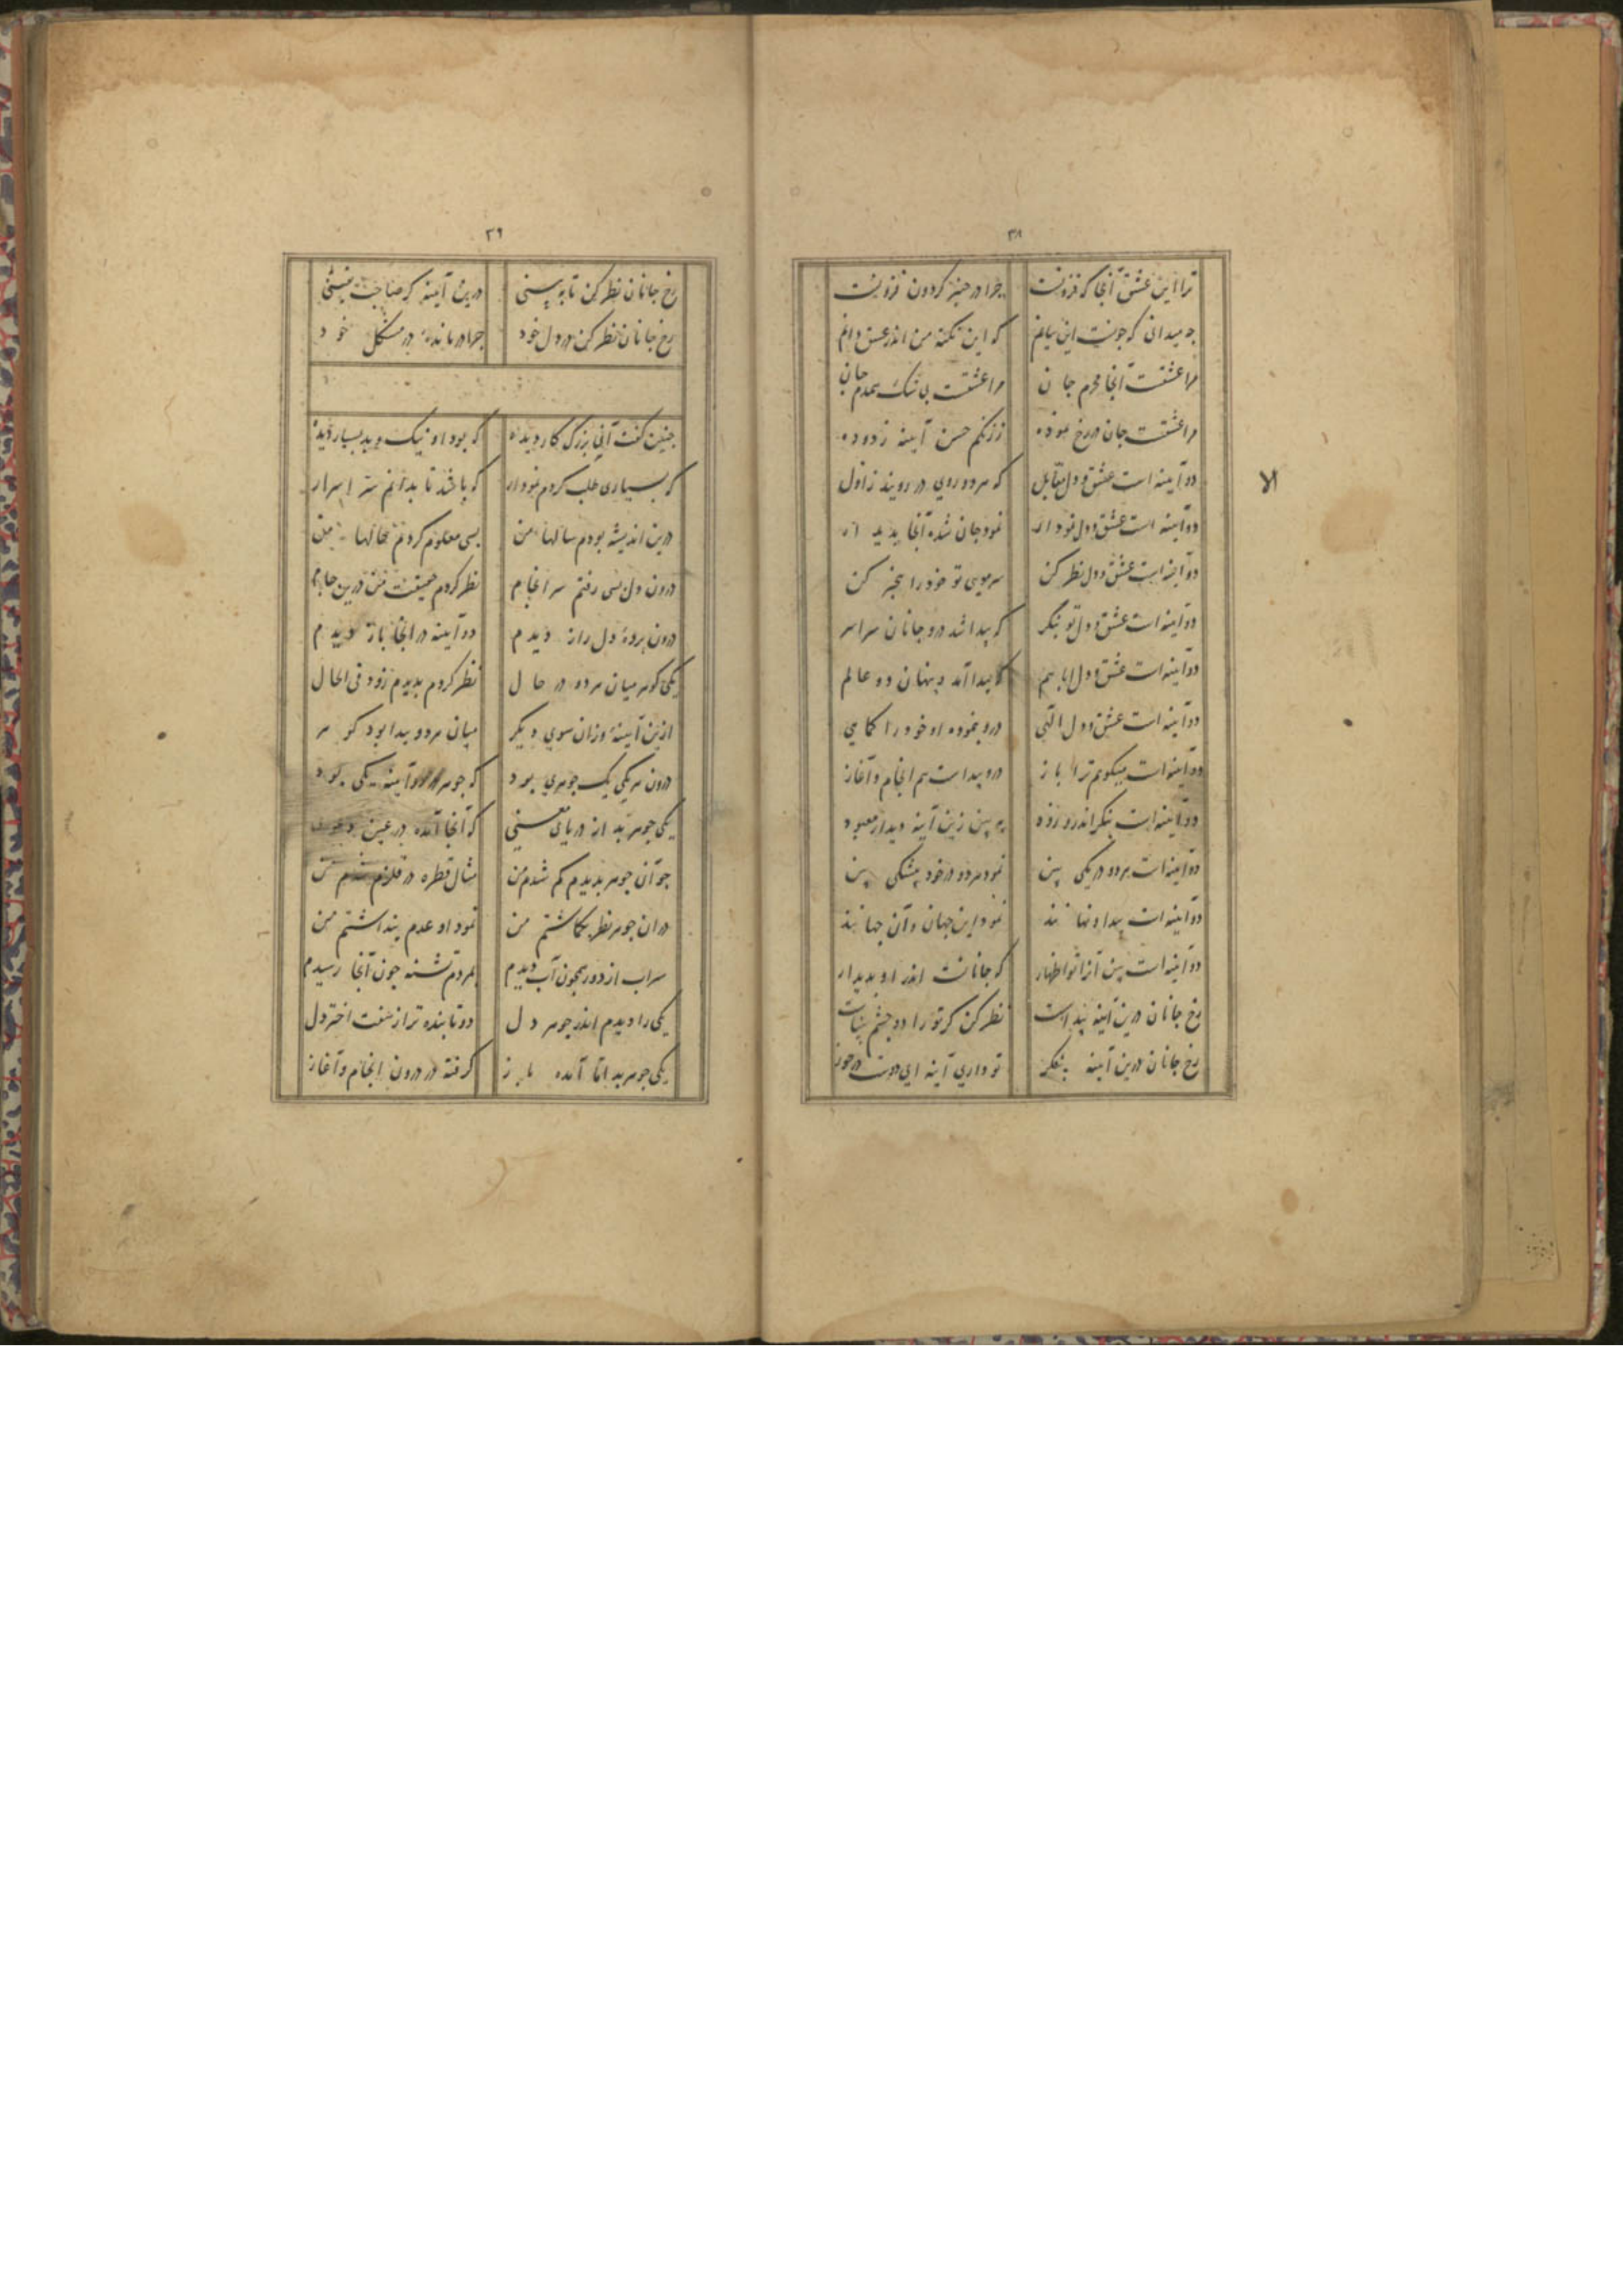 ۳۸
ترا این عشق آنجا که فزونست چرا در چنبر کردون فزونست
چه میدانی که چونست این بیانم که این نکته من اندر عشق دانم
مرا عشقت آنجا محرم جان مرا عشقت بی شک همدم جان
مرا عشقت جان در رخ نموده ز زنکم حسن آینه زدوده
دو آینه است عشق و دل مقابل که هر دو روی در رویند ز اول
دو آینه است عشق و دل نمودار نمود جان شده آنجا پدیدار
دو آینه است عشق و دل نظر کن سر موی تو خود را خبر کن
دو آینه است عشق و دل تو بنکر که پیدا شد درو جانان سراسر
دو آینه است عشق و دل ابا هم که پیدا آمد و پنهان دو عالم
دو آینه است عشق و دل الهی درو بنموده او خود را کماهی
دو آینه است میکویم ترا باز درو پیداست هم انجام و آغاز
دو آینه است بنکر اندرو زود به بین زین آینه دیدار معبود
دو آینه است هر دو در یکی بین نمود هر دو در خود بیشکی بین
دو آینه است پیدا و نهانند نمود این جهان و آن جهانند
دو آینه است بین آنرا تو اظهار که جانانست اندر او پدیدار
رخ جانان درین آینه پیداست نظر کن کر تو را دو چشم بیناست
رخ جانان درین آینه بنکر تو داری آینه ای دوست در خور
لا
۳۹
رخ جانان نظر کن تا به بینی درین آینه کر صاحب یقینی
رخ جانان نظر کن در دل خود چرا درمانده در مشکل خود
چنین کفت آنی بزرک کار دیده که بود او نیک و بد بسیار دیده
که بسیاری طلب کردم نمودار که باشد تا بدانم سر اسرار
درین اندیشه بودم سالها من بسی معلوم کردم حالها من
درون دل بسی رفتم سرانجام نظر کردم حقیقت من درین جام
درون پرده دل راز دیدم دو آینه در آنجا باز دیدم
یکی کوهر میان هر دو در حال نظر کردم بدیدم زود فی الحال
ازین آینه وزان سوی دیکر میان هر دو پیدا بود کوهر
درون هر یکی یک جوهری بود که جوهر در دو آینه یکی بود
یکی جوهر بد از دریای معنی که آنجا آمده در عین دعوی
چو آن جوهر بدیدم کم شدم من مثال قطره در قلزم شدم من
در ان جوهر نظر بکماشتم من نمود او عدم پنداشتم من
سراب از دور همچون آب دیدم بمردم تشنه چون آنجا رسیدم
یکی را دیدم اندر جوهر دل دو تابنده تر از هفت اختر دل
یکی جوهر بد اما آمده باز کرفته در درون انجام و آغاز